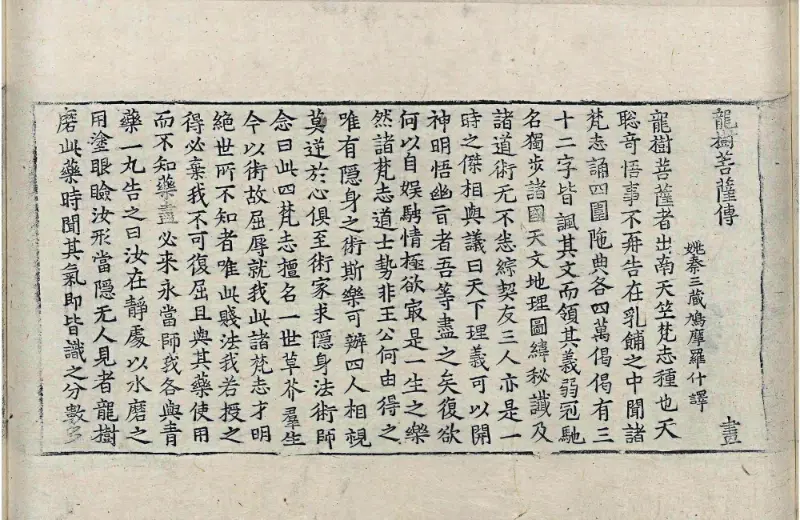 龍樹菩薩傳
姚秦三藏鳩摩羅什譯 畫
龍樹菩薩者出南天竺梵志種也天
聡奇悟事不再告在乳餔之中聞諸
梵志誦四圍陁典各四萬偈偈有三
十二字皆諷其文而領其義弱冠馳
名獨步諸國天文地理圖緯秘讖及
諸道術无不悉綜契友三人亦是一
時之傑相與議曰天下理義可以開
神明悟幽旨者吾等盡之矣復欲
何以自娛騁情極欲㝡是一生之樂
然諸梵志道士勢非王公何由得之
唯有隱身之術斯樂可辦四人相視
莫逆於心俱至術家求隱身法術師
念曰此四梵志擅名一世草芥羣生
今以術故屈辱就我此諸梵志才明
絕世所不知者唯此賤法我若授之
得必棄我不可復屈且與其藥使用
而不知藥盡必來永當師我各與青
藥一丸告之曰汝在靜處以水磨之
用塗眼瞼汝形當隱无人見者龍樹
磨此藥時聞其氣即皆識之分數多